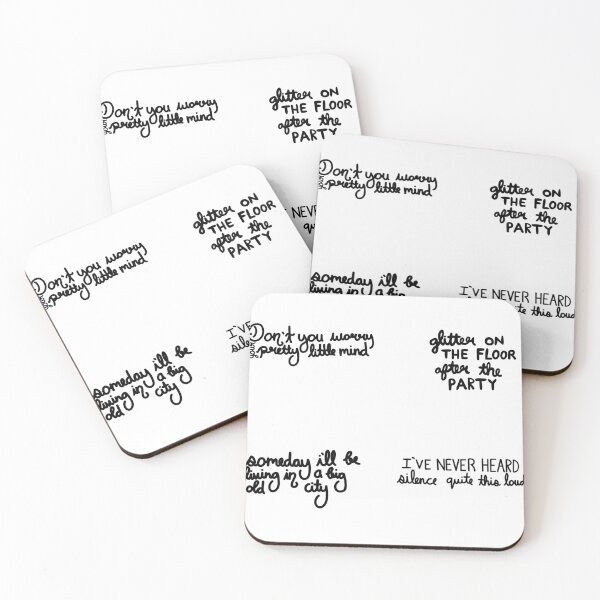 Don't you worry
your pretty little mind
glitter on
THE FLOOR
after the
PARTY
E NEVER
Don't you worry
your pretty little mind
glitter on
THE FLOOR
after the
PARTY
someday i'll be
living in a big
I'VE NEVER HEARD
quite this loud
Don't you worry
your pretty little mind
glitter on
THE FLOOR
after the
PARTY
someday i'll be
living in a big
old city
I'VE
Don't you worry
your pretty little mind
glitter on
THE FLOOR
after the
PARTY
someday i'll be
living in a big
old city
I'VE NEVER HEARD
silence quite this loud